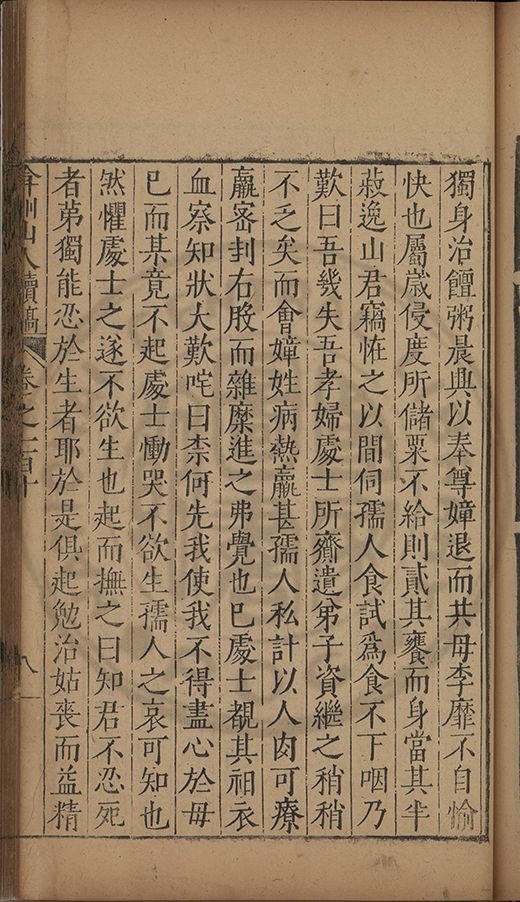 獨身治饘粥晨興以奉尊嫜退而共母李靡不自愉
快也屬歲侵度所儲粟不給則貳其饔而身當其半
菽逸山君竊恠之以間伺孺人食試為食不下咽乃
歎曰吾幾失吾孝婦處士所齎遺弟子資繼之稍稍
不乏矣而會嫜姓病熱羸甚孺人私計以人肉可療
羸密刲右股而雜糜進之弗覺也已處士覩其衵衣
血察知狀大歎咤曰柰何先我使我不得盡心於母
已而某竟不起處士慟哭不欲生孺人之哀可知也
然懼處士之遂不欲生也起而撫之曰知君不忍死
者第獨能忍於生者耶於是俱起勉治姑喪而益精
弇州山人續稿 卷之一百十 八